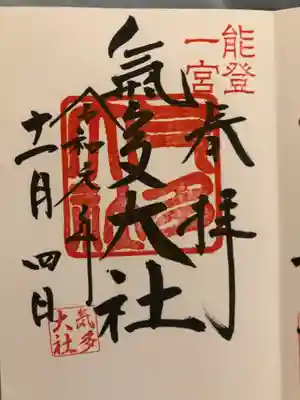 能登
一宮
奉拝
氣多大社
令和元年
十一月四日
氣多
大社